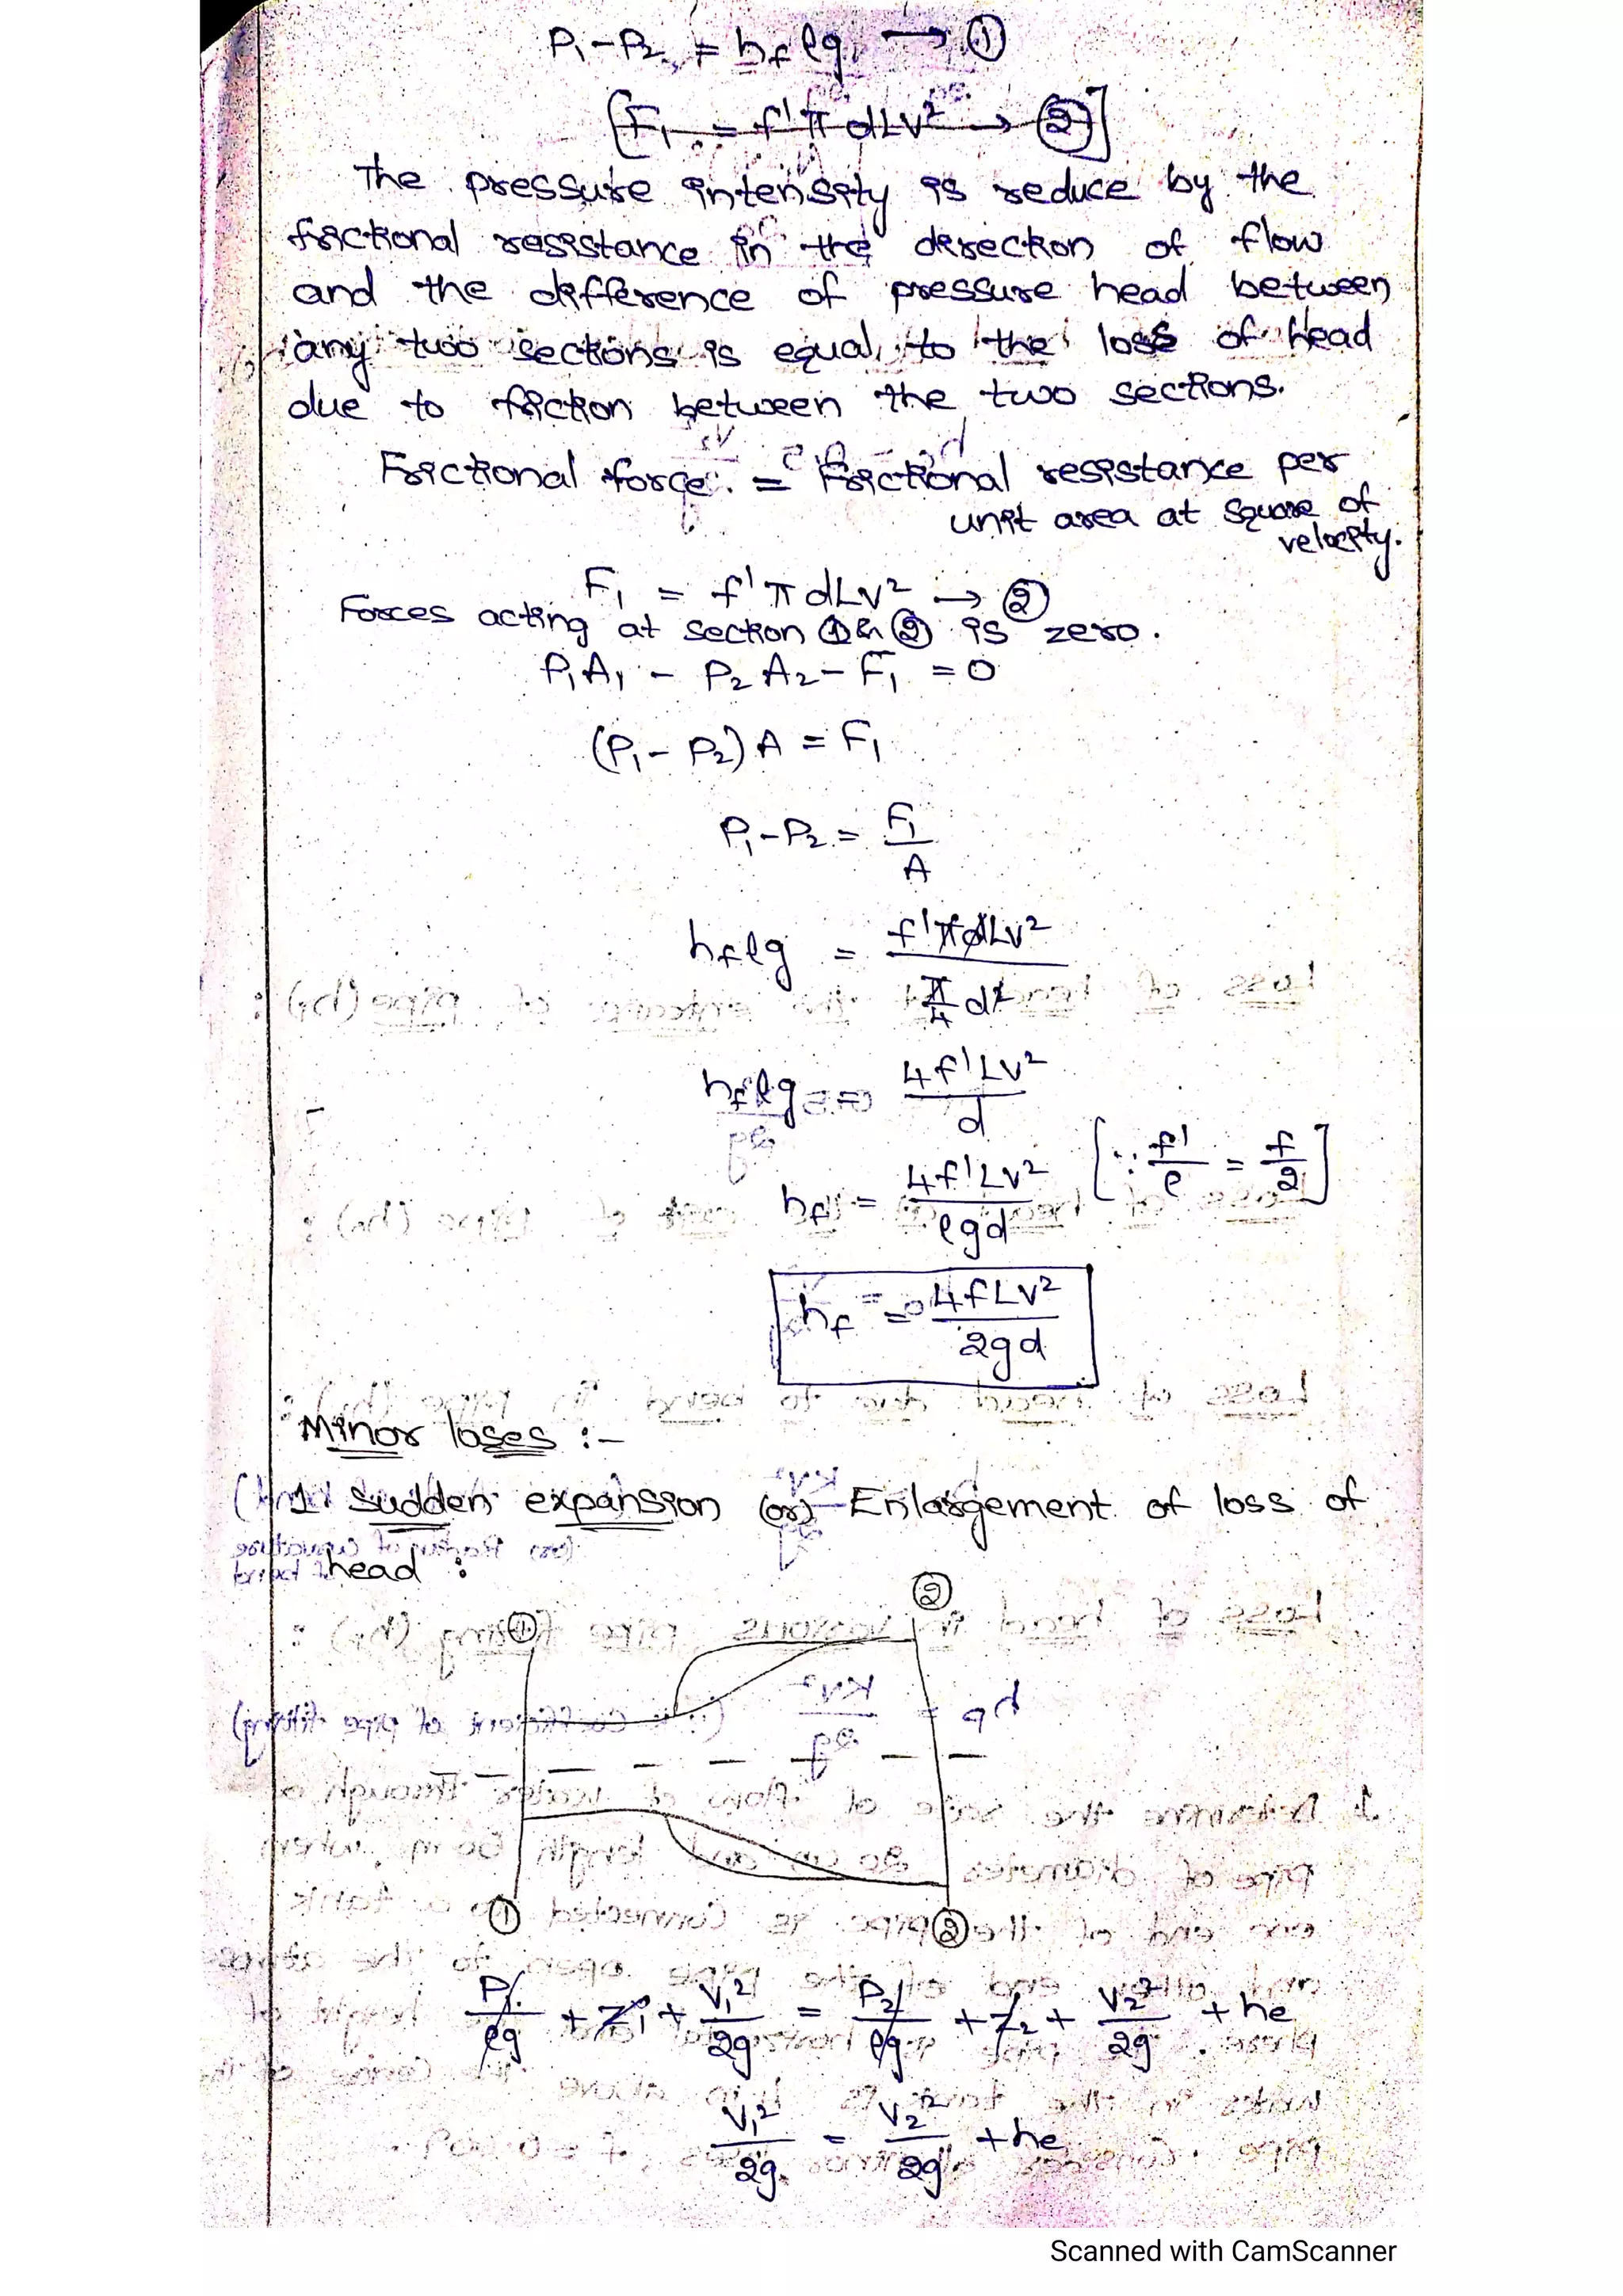 P₁ - P₂ = hf ρg → ①
[F₁ = f' π dLV² → ②]
The pressure intensity is reduce by the
frictional resistance in the direction of flow
and the difference of pressure head between
any two sections is equal to the loss of head
due to friction between the two sections.
Frictional force = Frictional resistance per
unit area at square of
velocity.
F₁ = f' π dLV² → ②
Forces acting at section ① & ② is zero.
P₁A₁ - P₂A₂ - F₁ = 0
(P₁ - P₂) A = F₁
P₁ - P₂ = F₁/A
hf ρg = f' π dLV² / (π/4 d²)
hf ρg = 4f'LV² / d
hf = 4f'LV² / ρgd [∵ f'/ρ = f/2]
hf = 4fLV² / 2gd
Minor loses :-
1. Sudden expansion (or) Enlargement of loss of
head :
① ②
① ②
P₁/ρg + Z₁ + V₁²/2g = P₂/ρg + Z₂ + V₂²/2g + he
V₁²/2g = V₂²/2g + he
Scanned with CamScanner